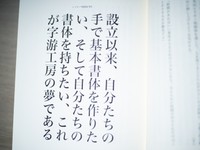 設立以来、自分たちの
手で基本書体を作りた
い、そして自分たちの
書体を持ちたい、これ
が字游工房の夢である